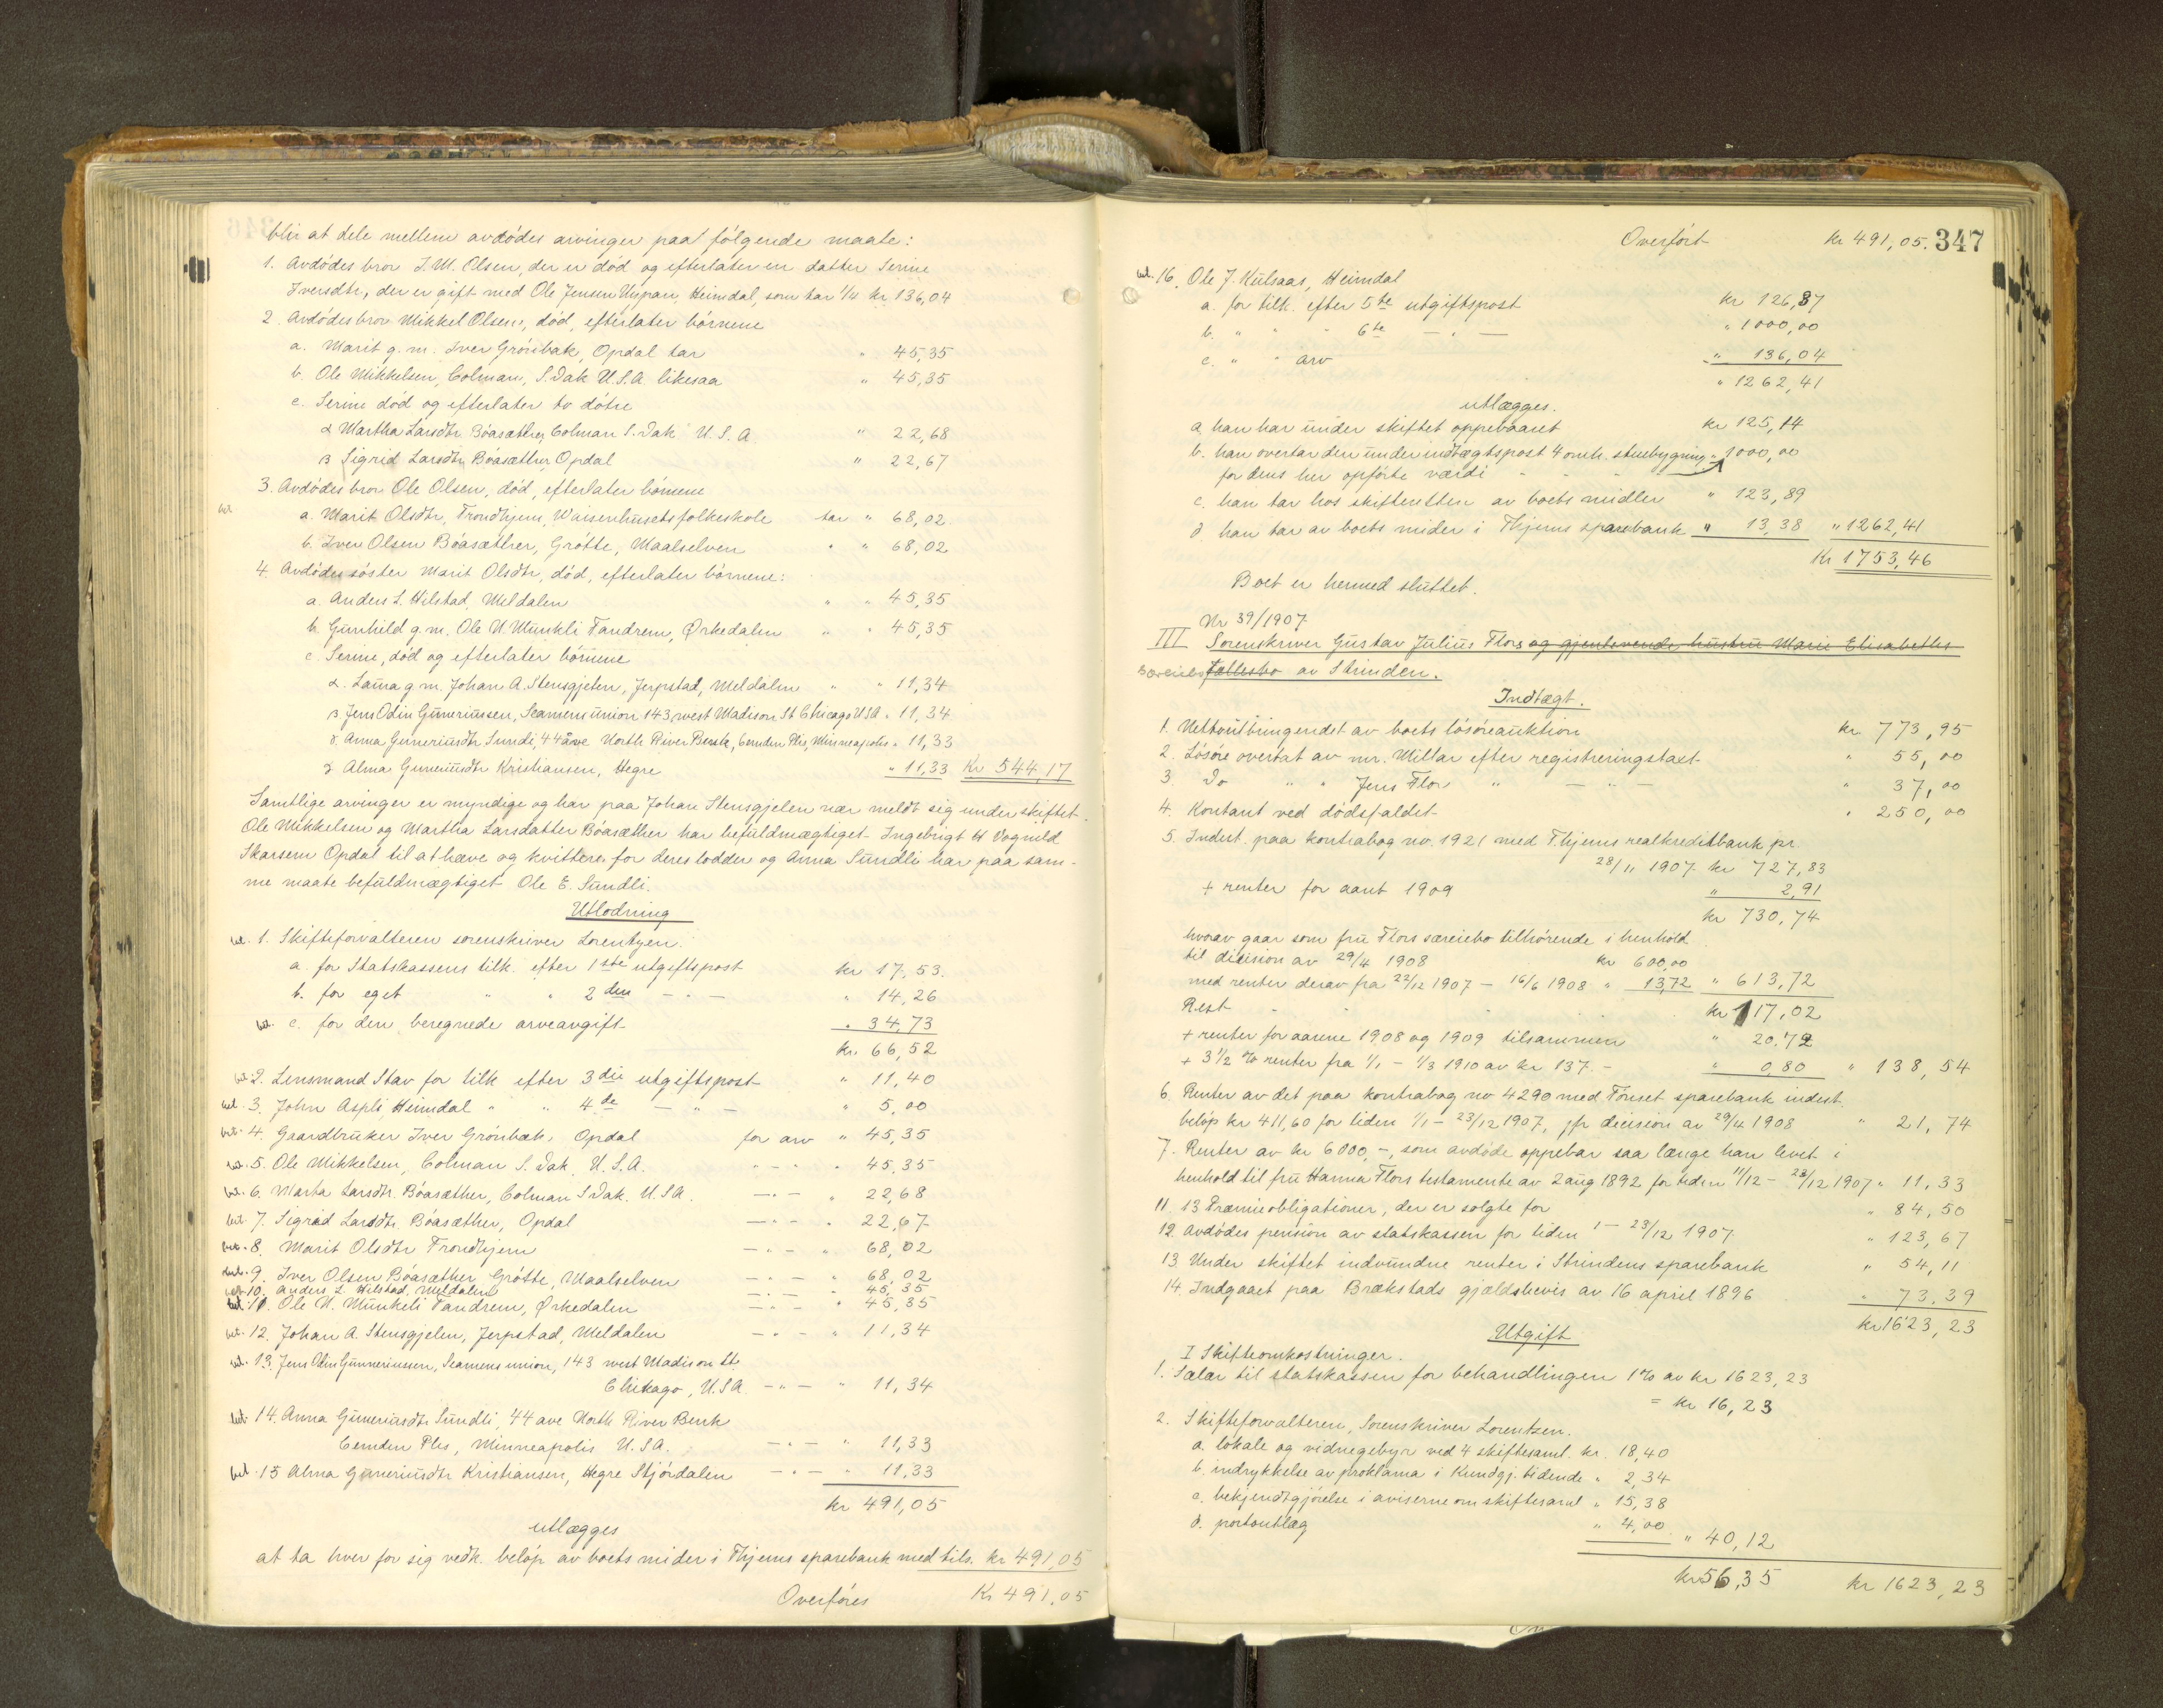 blir at dele mellem avdødes arvinger paa følgende maate:
1. Avdødes bror I. M. Olsen, der er død og efterlater en datter Serine
Iversdtr, der er gift med Ole Jensen Uspan, Heimdal, som tar 1/4 kr. 136,04
2. Avdødes bror Mikkel Olsen, død, efterlater børnene
a. Marit g. m. Iver Grønbak, Opdal tar " 45,35
b. Ole Mikkelsen, Colman, S. Dak U.S.A. likesaa " 45,35
c. Serine død og efterlater to døtre
α Martha Larsdtr Bøasæther, Colman S. Dak U.S.A " 22,68
β Sigrid Larsdtr Bøasæther, Opdal " 22,67
3. Avdødes bror Ole Olsen, død, efterlater børnene
a. Marit Olsdtr, Trondhjem, Waisenhusets folkeskole tar " 68,02.
b. Iver Olsen Bøasæther, Grøtte, Maalselven " " 68,02
4. Avdødes søster Marit Olsdtr, død, efterlater børnene:
a. Anders L. Hilstad, Meldalen " " 45,35
b. Gunhild g. m. Ole N. Munkli Tandrem, Ørkedalen " " 45,35
c. Serine, død og efterlater børnene
α. Laura g. m. Johan A. Stensgjelen, Jerpstad, Meldalen " " 11,34
β Jens Odin Guneriussen, Seamens union 143, west Madison St Chicago USA " 11,34
γ. Anna Guneriusdtr Sundli, 44 ave North River Benk, Cemden Ples, Minneapolis " 11,33
δ Alma Guneriusdtr Kristiansen, Hegre " 11,33 Kr 544,17
Samtlige arvinger er myndige og har paa Johan Stensgjelen nær meldt sig under skiftet.
Ole Mikkelsen og Martha Larsdatter Bøasæther har befuldmægtiget Ingebrigt H Vognild
Skarsem Opdal til at hæve og kvittere for deres lodder og Anna Sundli har paa sam-
me maate befuldmægtiget Ole E. Sundli.
Utlodning
bet. 1. Skifteforvalteren sorenskriver Lorentzen.
a. for Statskassens tilk. efter 1ste utgiftspost kr 17,53.
b. for eget " " 2den - " - " 14,26
bet. c. for den beregnede arveavgift " 34,73
kr. 66,52
bet. 2. Lensmand Stav for tilk efter 3die utgiftspost " 11,40
bet. 3. John Aspli Heimdal " " 4de - " - " 5,00
bet. 4. Gaardbruker Iver Grønbæk, Opdal for arv " 45,35
bet. 5. Ole Mikkelsen, Colman S. Dak. U.S.A. - " - " 45,35
bet. 6. Marta Larsdtr. Bøasæther, Colman S Dak. U.S.A. - " - " 22,68
bet. 7. Sigrid Larsdtr. Bøasæther, Opdal - " - " 22,67
bet. 8. Marit Olsdtr Trondhjem - " - " 68,02
bet. 9. Iver Olsen Bøasæther, Grøtte, Maalselven - " - " 68,02
bet. 10. Anders L. Hilstad, Meldalen - " - " 45,35
bet. 11. Ole N. Munkeli Tandrem, Ørkedalen - " - " 45,35
bet. 12. Johan A. Stensgjelen, Jerpstad, Meldalen - " - " 11,34
bet. 13. Jens Odin Gunneriussen, Seamens union, 143 west Madison St.
Chikago, U.S.A. - " - " 11,34
bet. 14. Anna Guneriusdtr Sundli, 44 ave North River Benk
Cemden Ples, Minneapolis U.S.A. - " - " 11,33
bet. 15 Alma Guneriusdtr Kristiansen, Hegre Stjørdalen - " - " 11,33
kr 491,05
utlægges
at ta hver for sig vedk. beløp av boets mider i Thjems sparebank med tils. kr 491,05
Overføres Kr 491,05
347
Overført kr 491,05.
bet. 16. Ole J. Kulsaas, Heimdal
a. for tilk. efter 5te utgiftspost kr 126,37
b. " " " 6te - " - " 1000,00
c. " " arv " 136,04
" 1262,41
utlægges.
a han har under skiftet oppebaaret kr 125,14
b. han overtar den under indtægtspost 4 omh. stuebygning " 1000,00
for dens her opførte værdi
c. han tar hos skifteretten av boets midler " 123,89
d han tar av boets mider i Thjems sparebank " 13,38 " 1262,41
Kr 1753,46
Boet er hermed sluttet.
Nr 39/1907
III Sorenskriver Gustav Julius Flors og gjenlevende hustru Marie Elisabeths
særeiebo fællesbo av Strinden.
Indtægt.
1. Nettoutbringendet av boets løsøreauktion kr. 773,95
2. Løsøre overtat av mr. Millar efter registreringstaxt " 55,00
3. Do " " Jens Flor " - " - " 37,00
4. Kontant ved dødsfaldet " 250,00
5. Indest. paa kontrabog no. 1921 med Thjems realkreditbank pr.
28/11 1907 kr 727,83
+ renter for aaret 1909 " 2,91
kr 730,74
hvorav gaar som fru Flors særeiebo tilhørende i henhold
til dicision av 29/4 1908 kr 600,00
med renter derav fra 22/12 1907 - 16/6 1908 " 13,72 " 613,72
Rest kr 117,02
+ renter for aarene 1908 og 1909 tilsammen " 20,72
+ 3 1/2 % renter fra 1/1 - 1/3 1910 av kr 137.- " 0,80 " 138,54
6. Renter av det paa kontrabog no 4290 med Tønset sparebank indest.
beløp kr 411,60 for tiden 1/1 - 23/12 1907, jfr dicision av 29/4 1908 " 21,74
7. Renter av kr 6000,-, som avdøde oppebar saa længe han levet i
henhold til fru Hanna Flors testamente av 2 aug 1892 for tiden 11/12 - 23/12 1907 " 11,33
11. 13 Præmieobligationer, der er solgte for " 84,50
12. Avdødes pension av statskassen for tiden 1 - 23/12 1907 " 123,67
13. Under skiftet indvundne renter i Strindens sparebank " 54,11
14. Indgaaet paa Brækstads gjældsbevis av 16 april 1896 " 73,39
kr 1623,23
Utgift
I Skifteomkostninger.
1. Salær til statskassen for behandlingen 1% av kr 1623,23
= kr 16,23
2. Skifteforvalteren, Sorenskriver Lorentzen.
a. lokale og vidnegebyr ved 4 skiftesaml. kr. 18,40
b. indrykkelse av proklama i Kundgj. tidende " 2,34
c. bekjendtgjørelse i aviserne om skiftesaml " 15,38
d. portoutlæg " 4,00 " 40,12
kr 56,35 kr 1623,23